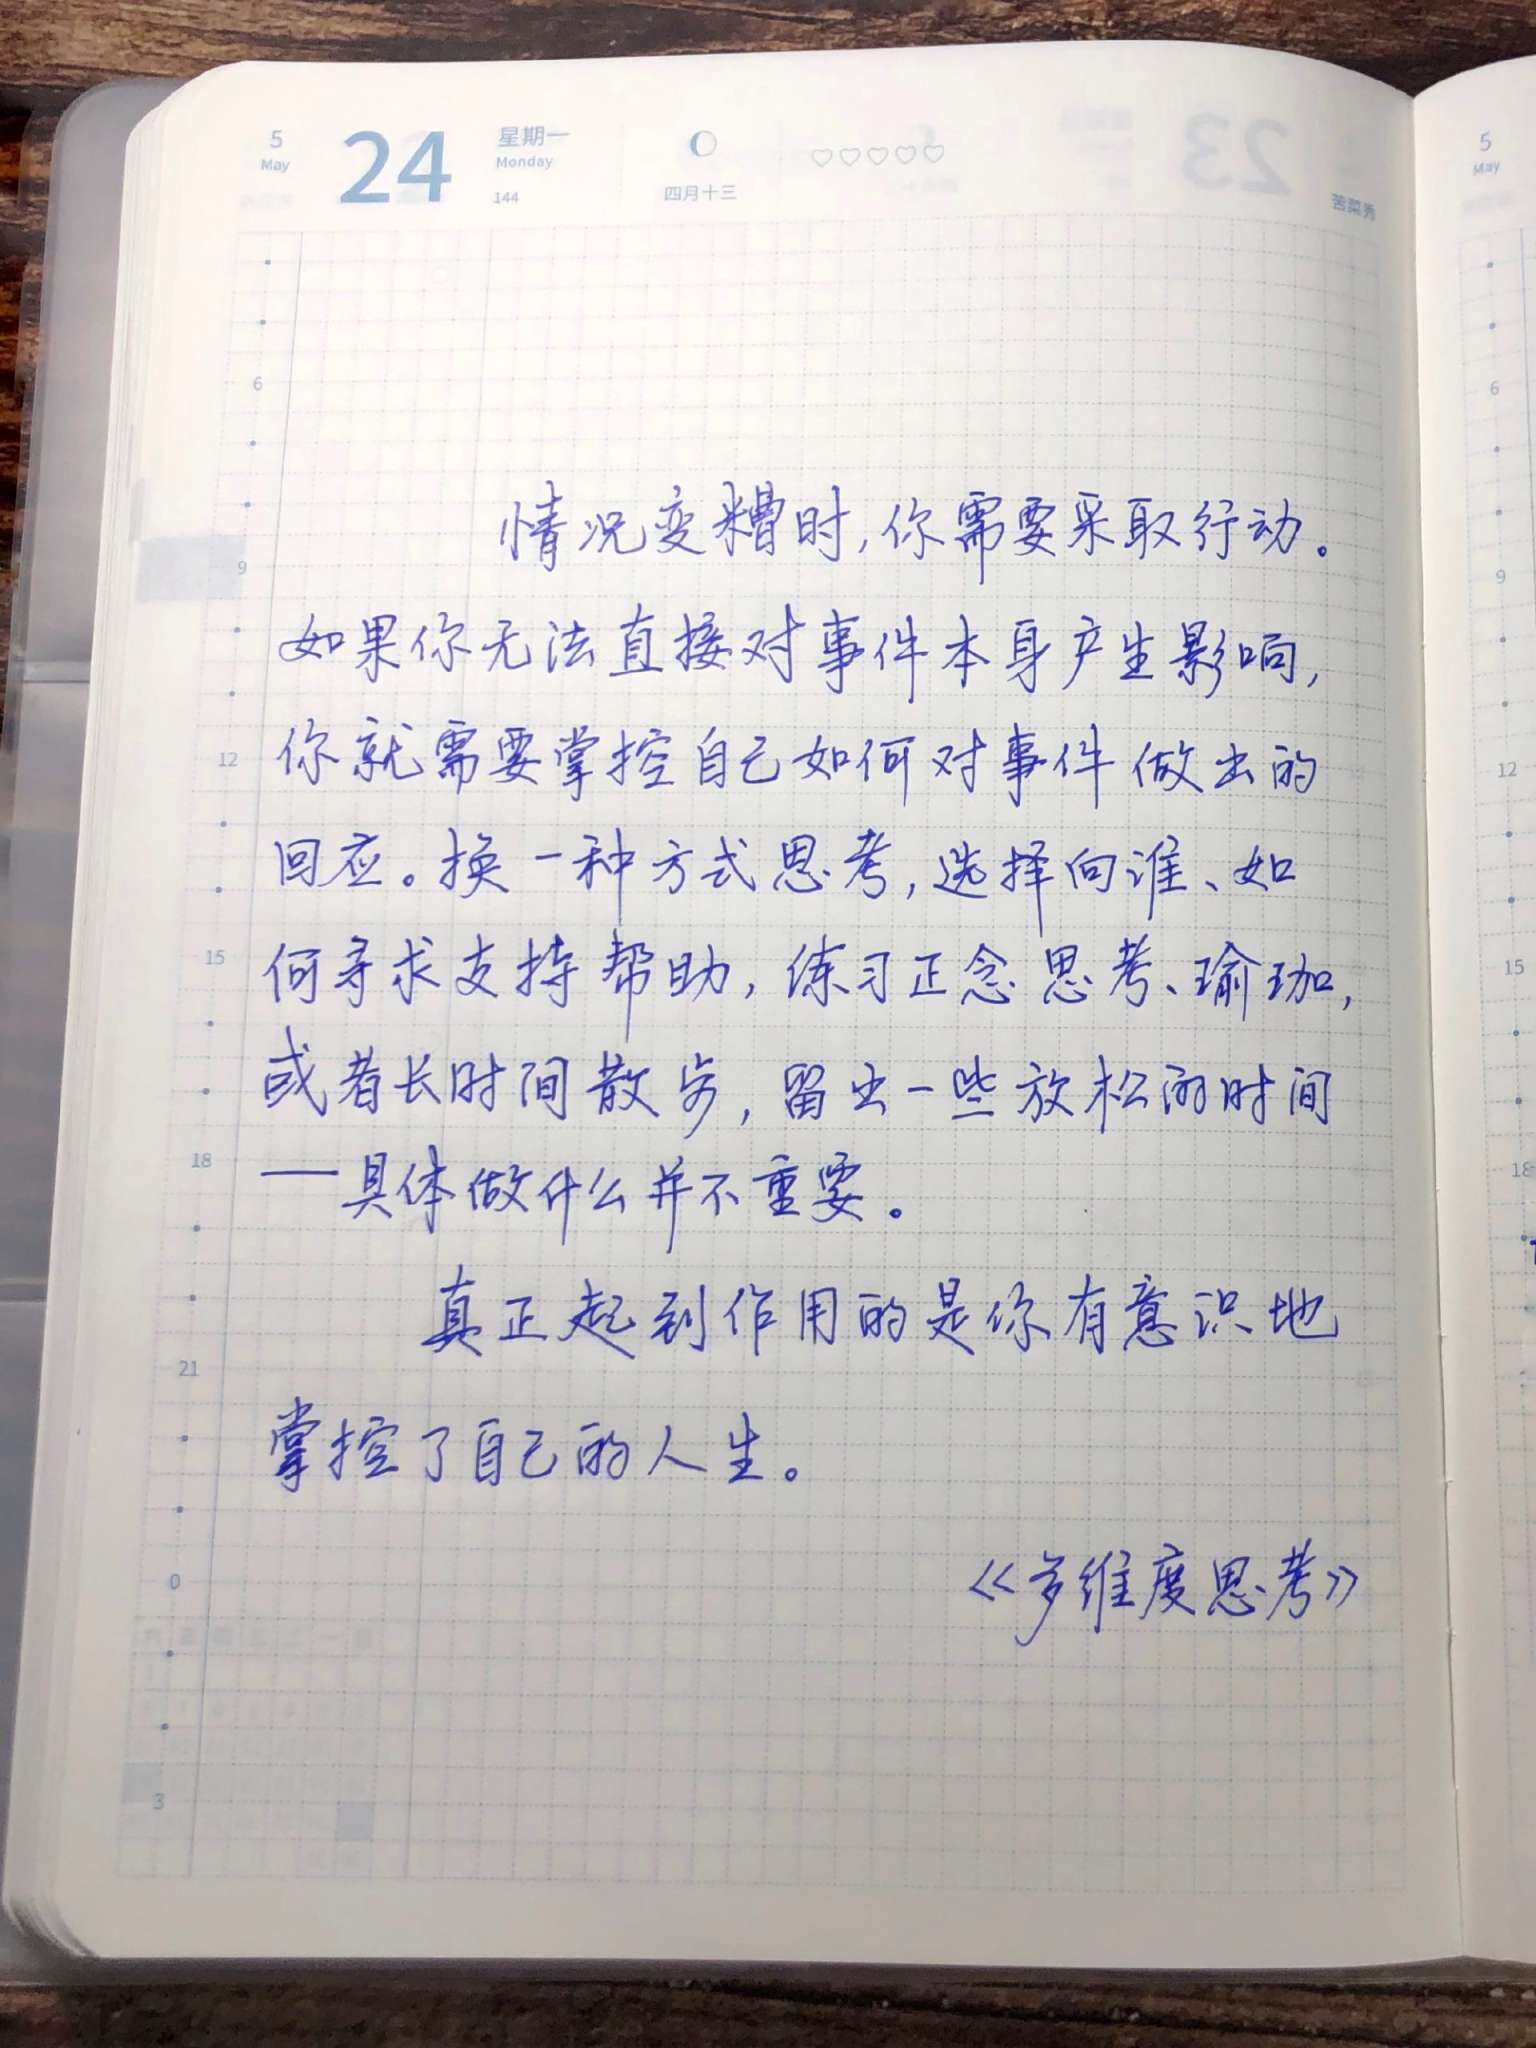 5
May
24
星期一
Monday
144
四月十三
苦菜秀
5
May
情况变糟时，你需要采取行动。
如果你无法直接对事件本身产生影响，
你就需要掌控自己如何对事件做出的
回应。换一种方式思考，选择向谁、如
何寻求支持帮助，练习正念思考、瑜珈，
或者长时间散步，留出一些放松的时间
——具体做什么并不重要。
真正起到作用的是你有意识地
掌控了自己的人生。
《多维度思考》
6
9
12
15
18
21
0
3
6
9
12
15
18